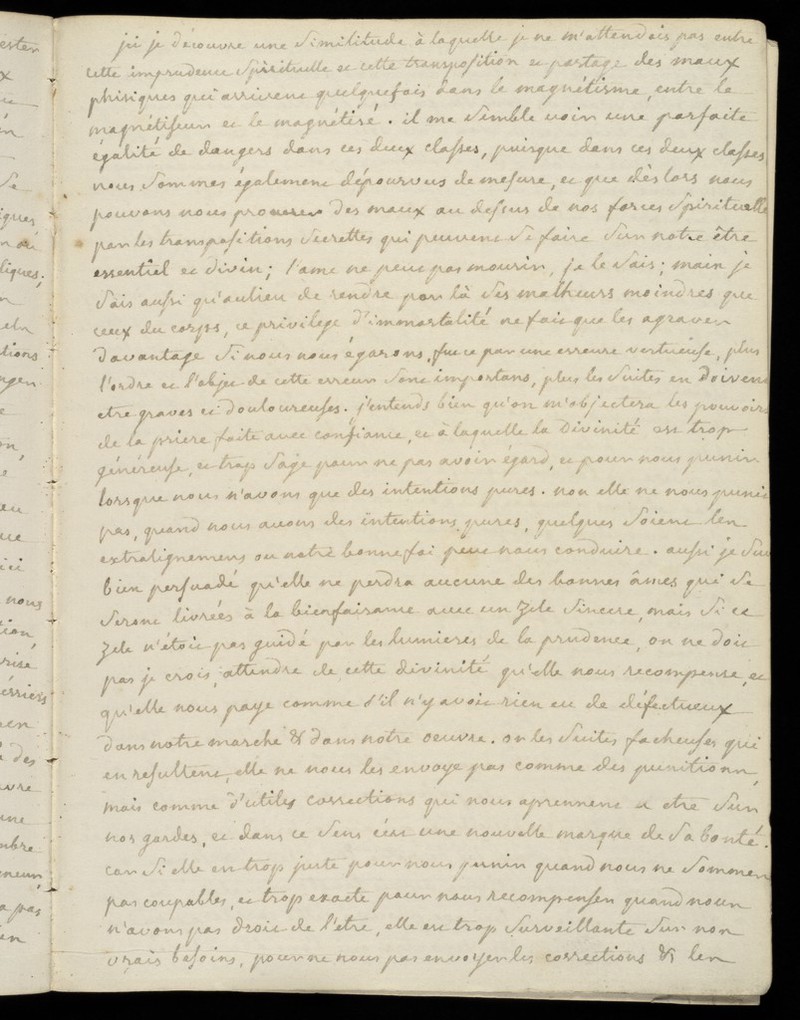 ici je découvre une similitude à laquelle je ne m'attendois pas entre
cette imprudence spirituelle et cette transposition et partage des maux
phisiques qui arrivent quelquefois dans le magnétisme, entre le
magnétiseur et le magnétisé. il me semble voir une parfaite
égalité de dangers dans ces deux classes, puisque dans ces deux classes
nous sommes également dépourvus de mesure, et que dès lors nous
pouvons nous procurer des maux au dessus de nos forces spirituelles
par les transpositions secrettes qui peuvent se faire sur notre être
essentiel et divin; l'ame ne peut pas mourir, je le sais; mais je
sais aussi qu'aulieu de rendre par là ses malheurs moindres que
ceux du corps, ce privilege d'immortalité ne fait que les agraver
davantage si nous nous égarons, fut ce par une erreure vertueuse, plus
l'ordre et l'objet de cette erreur sont importans, plus les suites en doivent
etre graves et douloureuses. j'entends bien qu'on m'objectera les pouvoirs
de la priere faite avec confiance, et à laquelle la Divinité est trop
généreuse, et trop sage pour ne pas avoir égard, et pour nous punir
lorsque nous n'avons que des intentions pures. non elle ne nous punit
pas, quand nous avons des intentions pures, quelques soient les
extralignemens ou notre bonne foi peut nous conduire. aussi je suis
bien persuadé qu'elle ne perdra aucune des bonnes âmes qui se
seront livrées à la bienfaisance avec un zele sincere, mais si ce
zele n'étoit pas guidé par les lumieres de la prudence, on ne doit
pas je crois, attendre de cette divinité qu'elle nous recompense, et
qu'elle nous paye comme s'il n'y avoit rien eu de défectueux
dans notre marche & dans notre oeuvre. or les suites facheuses qui
en resultent, elle ne nous les envoye pas comme des punitions,
mais comme d'utiles corrections qui nous aprennent a etre sur
nos gardes, et dans ce sens c'est une nouvelle marque de sa bonté.
car si elle est trop juste pour nous punir quand nous ne sommes
pas coupables, et trop exacte pour nous recompenser quand nous
n'avons pas droit de l'etre, elle est trop surveillante sur nos
vrais besoins, pour ne nous pas envoyer les corrections & les